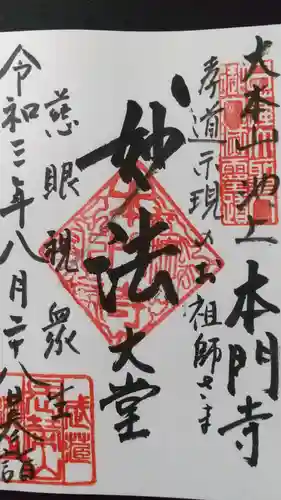 大本山池上本門寺
孝道示現のお祖師さま
妙法
大堂
慈眼視衆生
令和三年八月二十八日暮詣